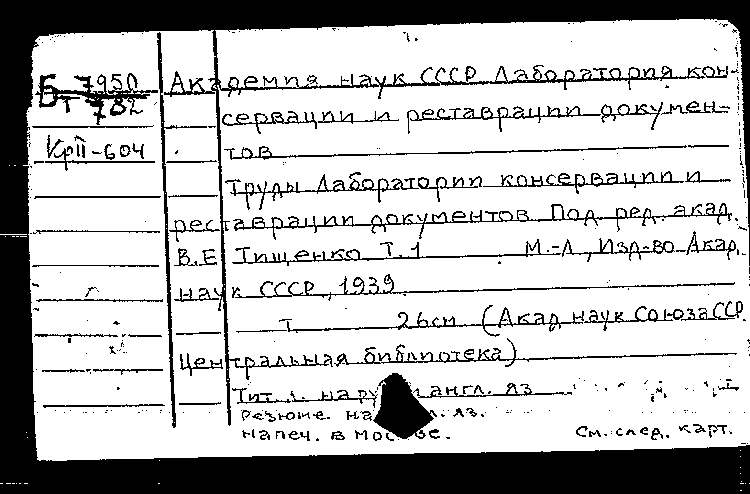 1.
Б 7950 Академия наук СССР Лаборатория кон-
т 782 сервации и реставрации докумен-
КрII-604 тов
Труды Лаборатории консервации и
реставрации документов Под ред. акад.
В.Е Тищенко Т.1 М.-Л, Изд-во Акад.
наук СССР, 1939
т 26см (Акад наук Союза ССР
Центральная библиотека)
Тит л. на англ. яз
Резюме. на яз.
напеч. в Москве. См. след. карт.